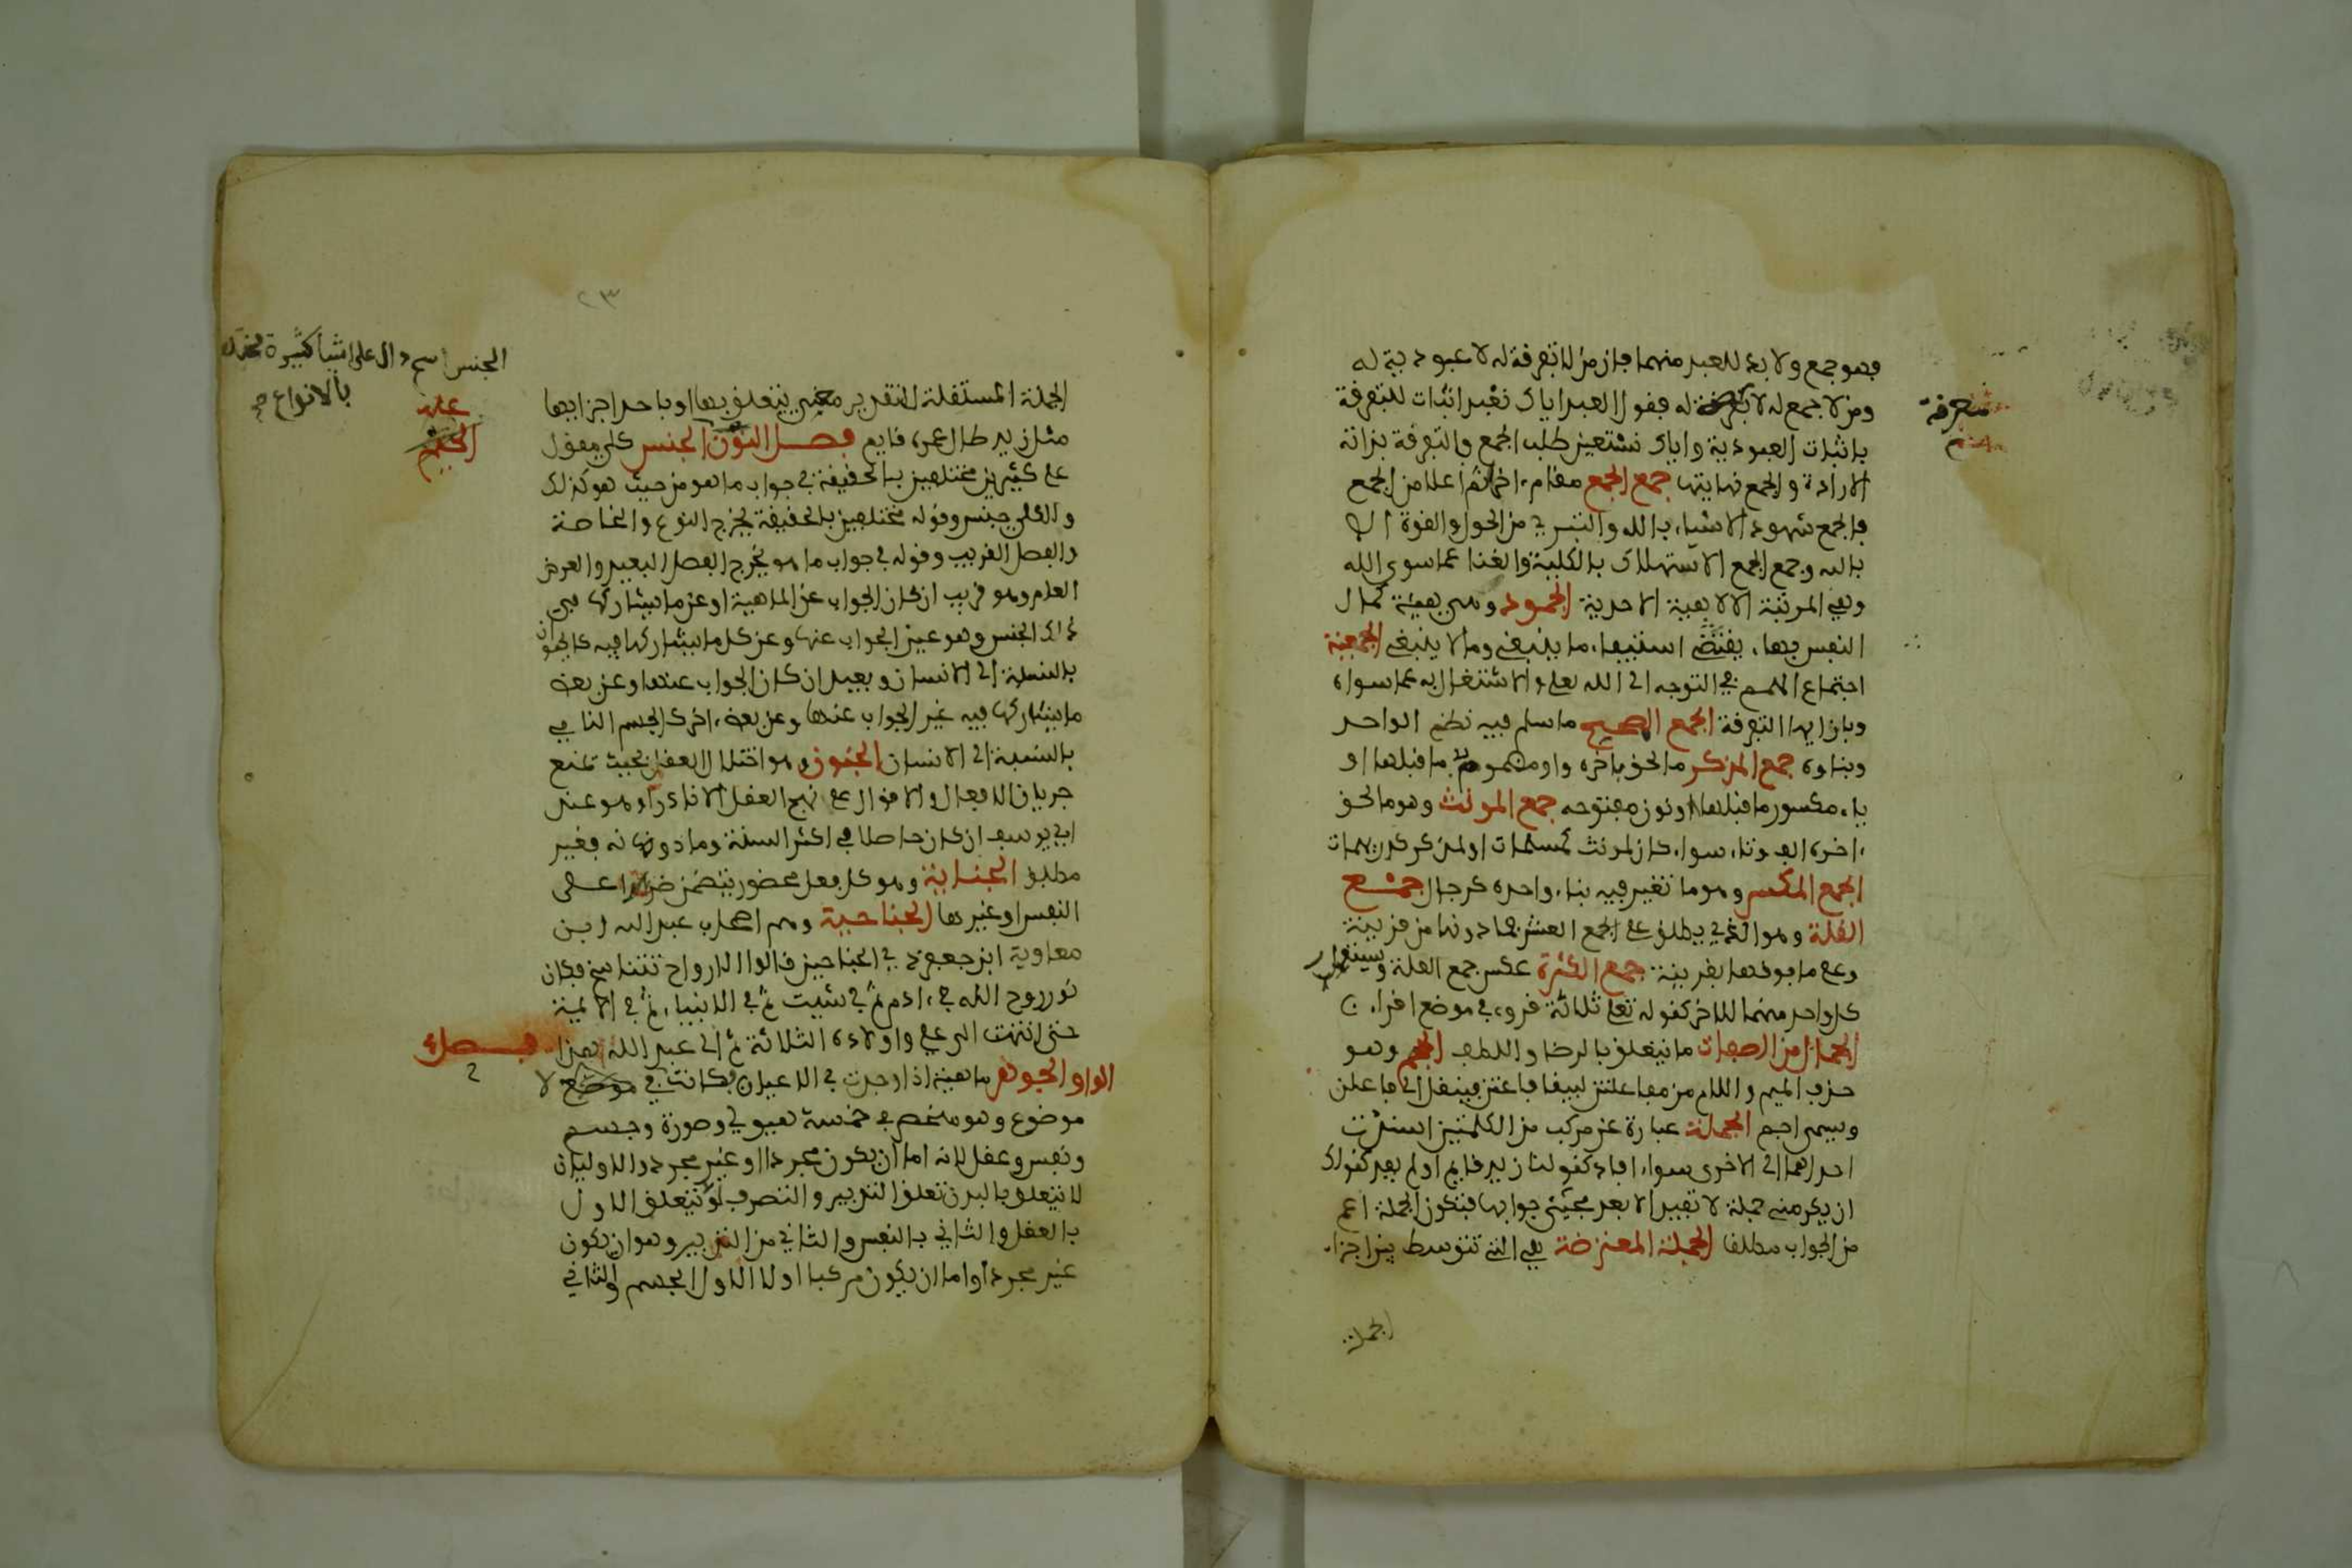 فهو جمع ولا بد للعبد منهما فإن من لا تفرقة له لا عبودية له
ومن لا جمع له لا معرفة له فقول العبد اياك نعبد اثبات للتفرقة
معرفة
باثبات العبودية واياك نستعين طلب الجمع والتفرقة بداية
الارادة والجمع نهايتها جمع الجمع مقام اخر اتم اعلا من الجمع
فالجمع شهود الاشياء بالله والتبري من الحول والقوة الا
بالله وجمع الجمع الاستهلاك بالكلية والفنا عما سوى الله
وهي المرتبة الاحدية الجمود وهي هيئة كمال
النفس بها يقتضي استيفاء ما ينبغي وما لا ينبغي الجمعية
اجتماع الهمم في التوجه الى الله تعلى والاشتغال به عما سواه
وبازايها التفرقة الجمع الصحيح ما سلم فيه نظم الواحد
وبناوه جمع المذكر ما لحق باخره واو مضموم ما قبلها او
ياء مكسور ما قبلها ونون مفتوحه جمع المونث وهو ما لحق
اخره الف وتاء سواء كان لمونث كمسلمات او لمذكر كدريهمات
الجمع المكسر وهو ما تغير فيه بناء واحده كرجال جمع
القلة وهو الذي يطلق على الجمع العشرة فما دونها من قرينة
وعلى ما فوقها بقرينة جمع الكثرة عكس جمع القلة ويستعار
كل واحد منهما للاخر كقوله تعلى ثلاثة قروء في موضع اقراء
الجمال من الصفات ما يتعلق بالرضا واللطف الجمم وهو
حذف الميم واللام من مفاعلتن ليبقا فاعتن فينقل الى فاعلن
ويسمى اجم الجملة عبارة عن مركب من الكلمتين اسندت
احداهما الى الاخرى سواء افاد كقولنا زيد قايم او لم يفد كقولك
ان يكرمني جملة لا تفيد الا بعد مجيئ جوابها فتكون الجملة اعم
من الجواب مطلقا الجملة المعترضة هي التي تتوسط بين اجزاء
الجملة
٢٣
الجنس اسم دال على اشيا كثيرة مختلفة
بالانواع صح
الجملة المستقلة لتقدير معنى يتعلق بها او باحد اجزايها
مثل زيد طال عمره قايم فصل النون الجنس كلي مقول
على كثيرين مختلفين بالحقيقة في جواب ما هو من حيث هو كذلك
والكلي جنس وقوله مختلفين بالحقيقة يخرج النوع والخاصة
والفصل القريب وقوله في جواب ما هو يخرج الفصل البعيد والعرض
العام وهو قريب ان كان الجواب عن الماهية او عن ما يشاركها في
ذلك الجنس وهو عين الجواب عنها وعن كل ما يشاركها فيه كالحيوان
بالنسبة الى الانسان وبعيد ان كان الجواب عنها وعن بعض
ما يشاركها فيه غير الجواب عنها وعن بعض اخر كالجسم النامي
بالنسبة الى الانسان الجنون هو اختلال العقل بحيث تمنع
جريان الافعال والاقوال على نهج العقل الا نادرا وهو عند
ابي يوسف ان كان حاصلا في اكثر السنة وما دونها فغير
مطبق الجناية وهو كل فعل محضور يتضمن ضررا على
النفس او غيرها الجناحية وهم اصحاب عبد الله ابن
معاوية ابن جعفر ذي الجناحين قالوا الارواح تتناسخ فكان
نور روح الله في ادم ثم في شيت ثم في الانبياء ثم في الايمة
حتى انتهت الى علي واولاده الثلاثة ثم الى عبد الله هذا فصل
الواو الجوهر ماهية اذا وجدت في الاعيان كانت لا في
موضوع وهو منحصر في خمسة هيولي وصورة وجسم
ونفس وعقل لانه اما ان يكون مجردا او غير مجرد والاول ان
لا يتعلق بالبدن تعلق التدبير والتصرف او يتعلق الاول
بالعقل والثاني بالنفس والثاني من التدبير وهو ان يكون
غير مجرد اواما ان يكون مركبا اولا الاول الجسم والثاني